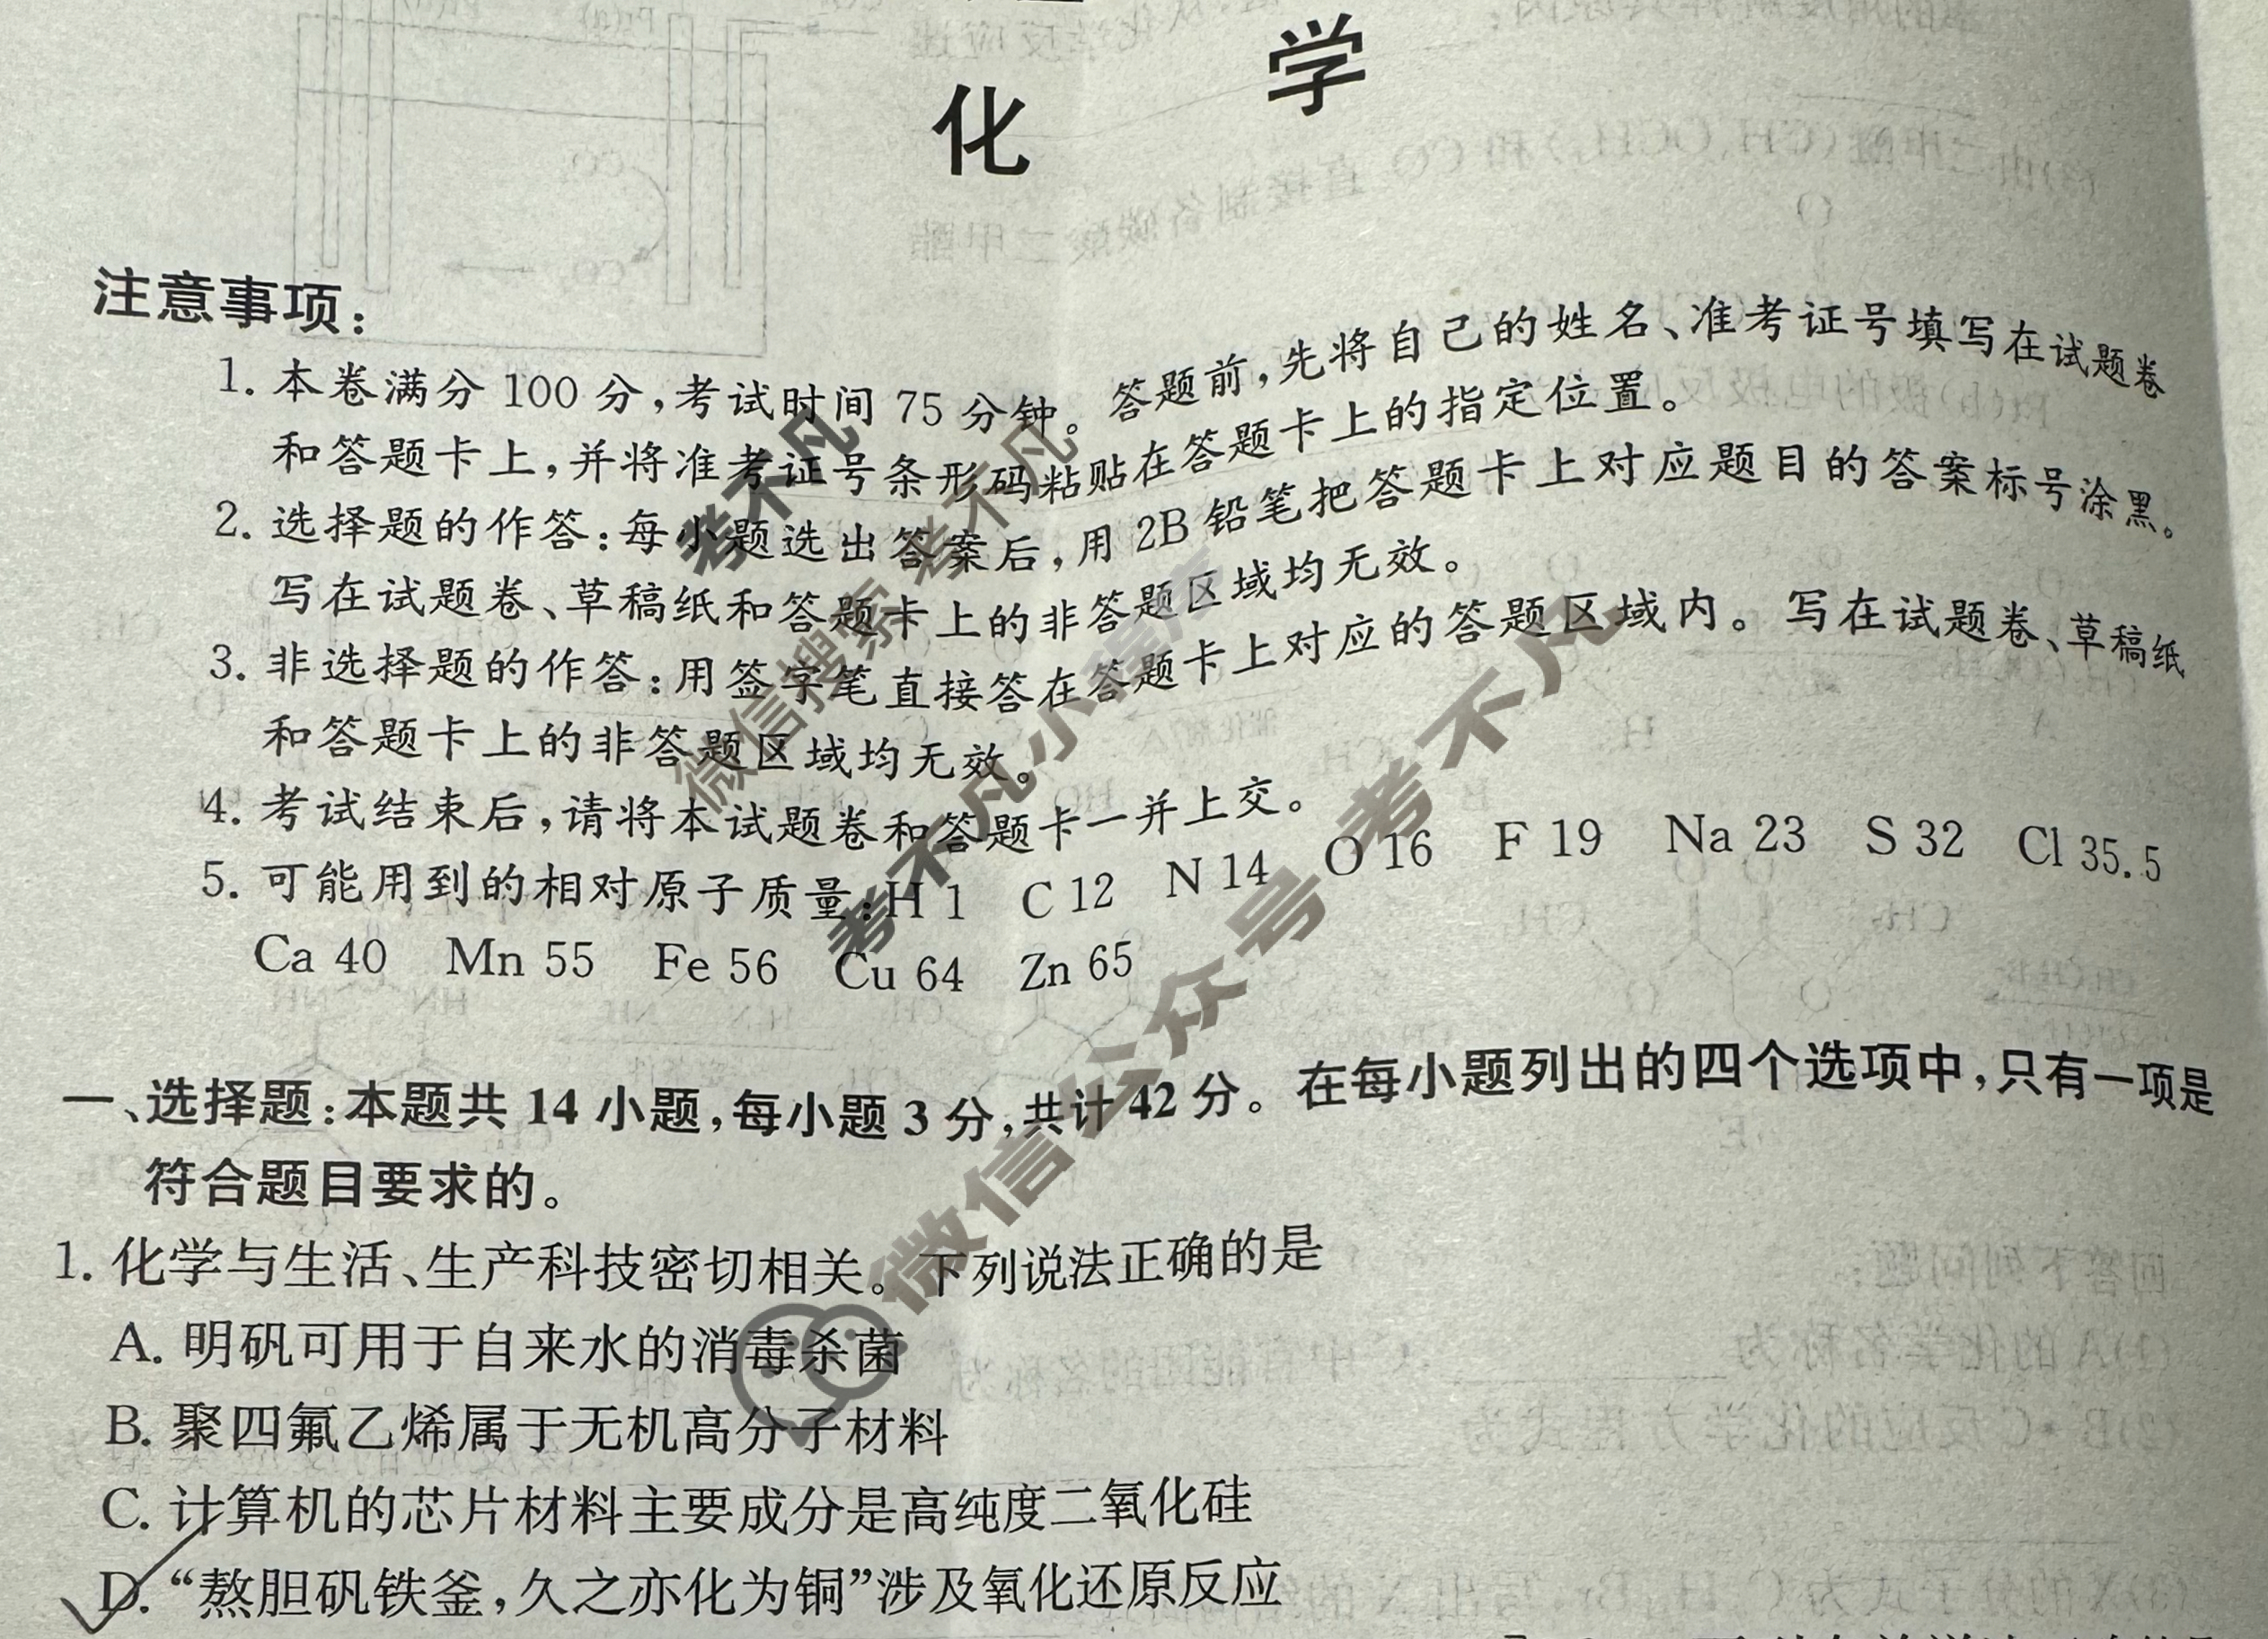 化 学
注意事项：
1. 本卷满分 100 分，考试时间 75 分钟。答题前，先将自己的姓名、准考证号填写在试题卷
和答题卡上，并将准考证号条形码粘贴在答题卡上的指定位置。
2. 选择题的作答：每小题选出答案后，用 2B 铅笔把答题卡上对应题目的答案标号涂黑。
写在试题卷、草稿纸和答题卡上的非答题区域均无效。
3. 非选择题的作答：用签字笔直接答在答题卡上对应的答题区域内。写在试题卷、草稿纸
和答题卡上的非答题区域均无效。
4. 考试结束后，请将本试题卷和答题卡一并上交。
5. 可能用到的相对原子质量：H 1 C 12 N 14 O 16 F 19 Na 23 S 32 Cl 35.5
Ca 40 Mn 55 Fe 56 Cu 64 Zn 65
一、选择题：本题共 14 小题，每小题 3 分，共计 42 分。在每小题列出的四个选项中，只有一项是
符合题目要求的。
1. 化学与生活、生产科技密切相关。下列说法正确的是
A. 明矾可用于自来水的消毒杀菌
B. 聚四氟乙烯属于无机高分子材料
C. 计算机的芯片材料主要成分是高纯度二氧化硅
D. “熬胆矾铁釜，久之亦化为铜”涉及氧化还原反应
考不凡
微信搜索 考不凡
考不凡小程序
微信公众号 考不凡